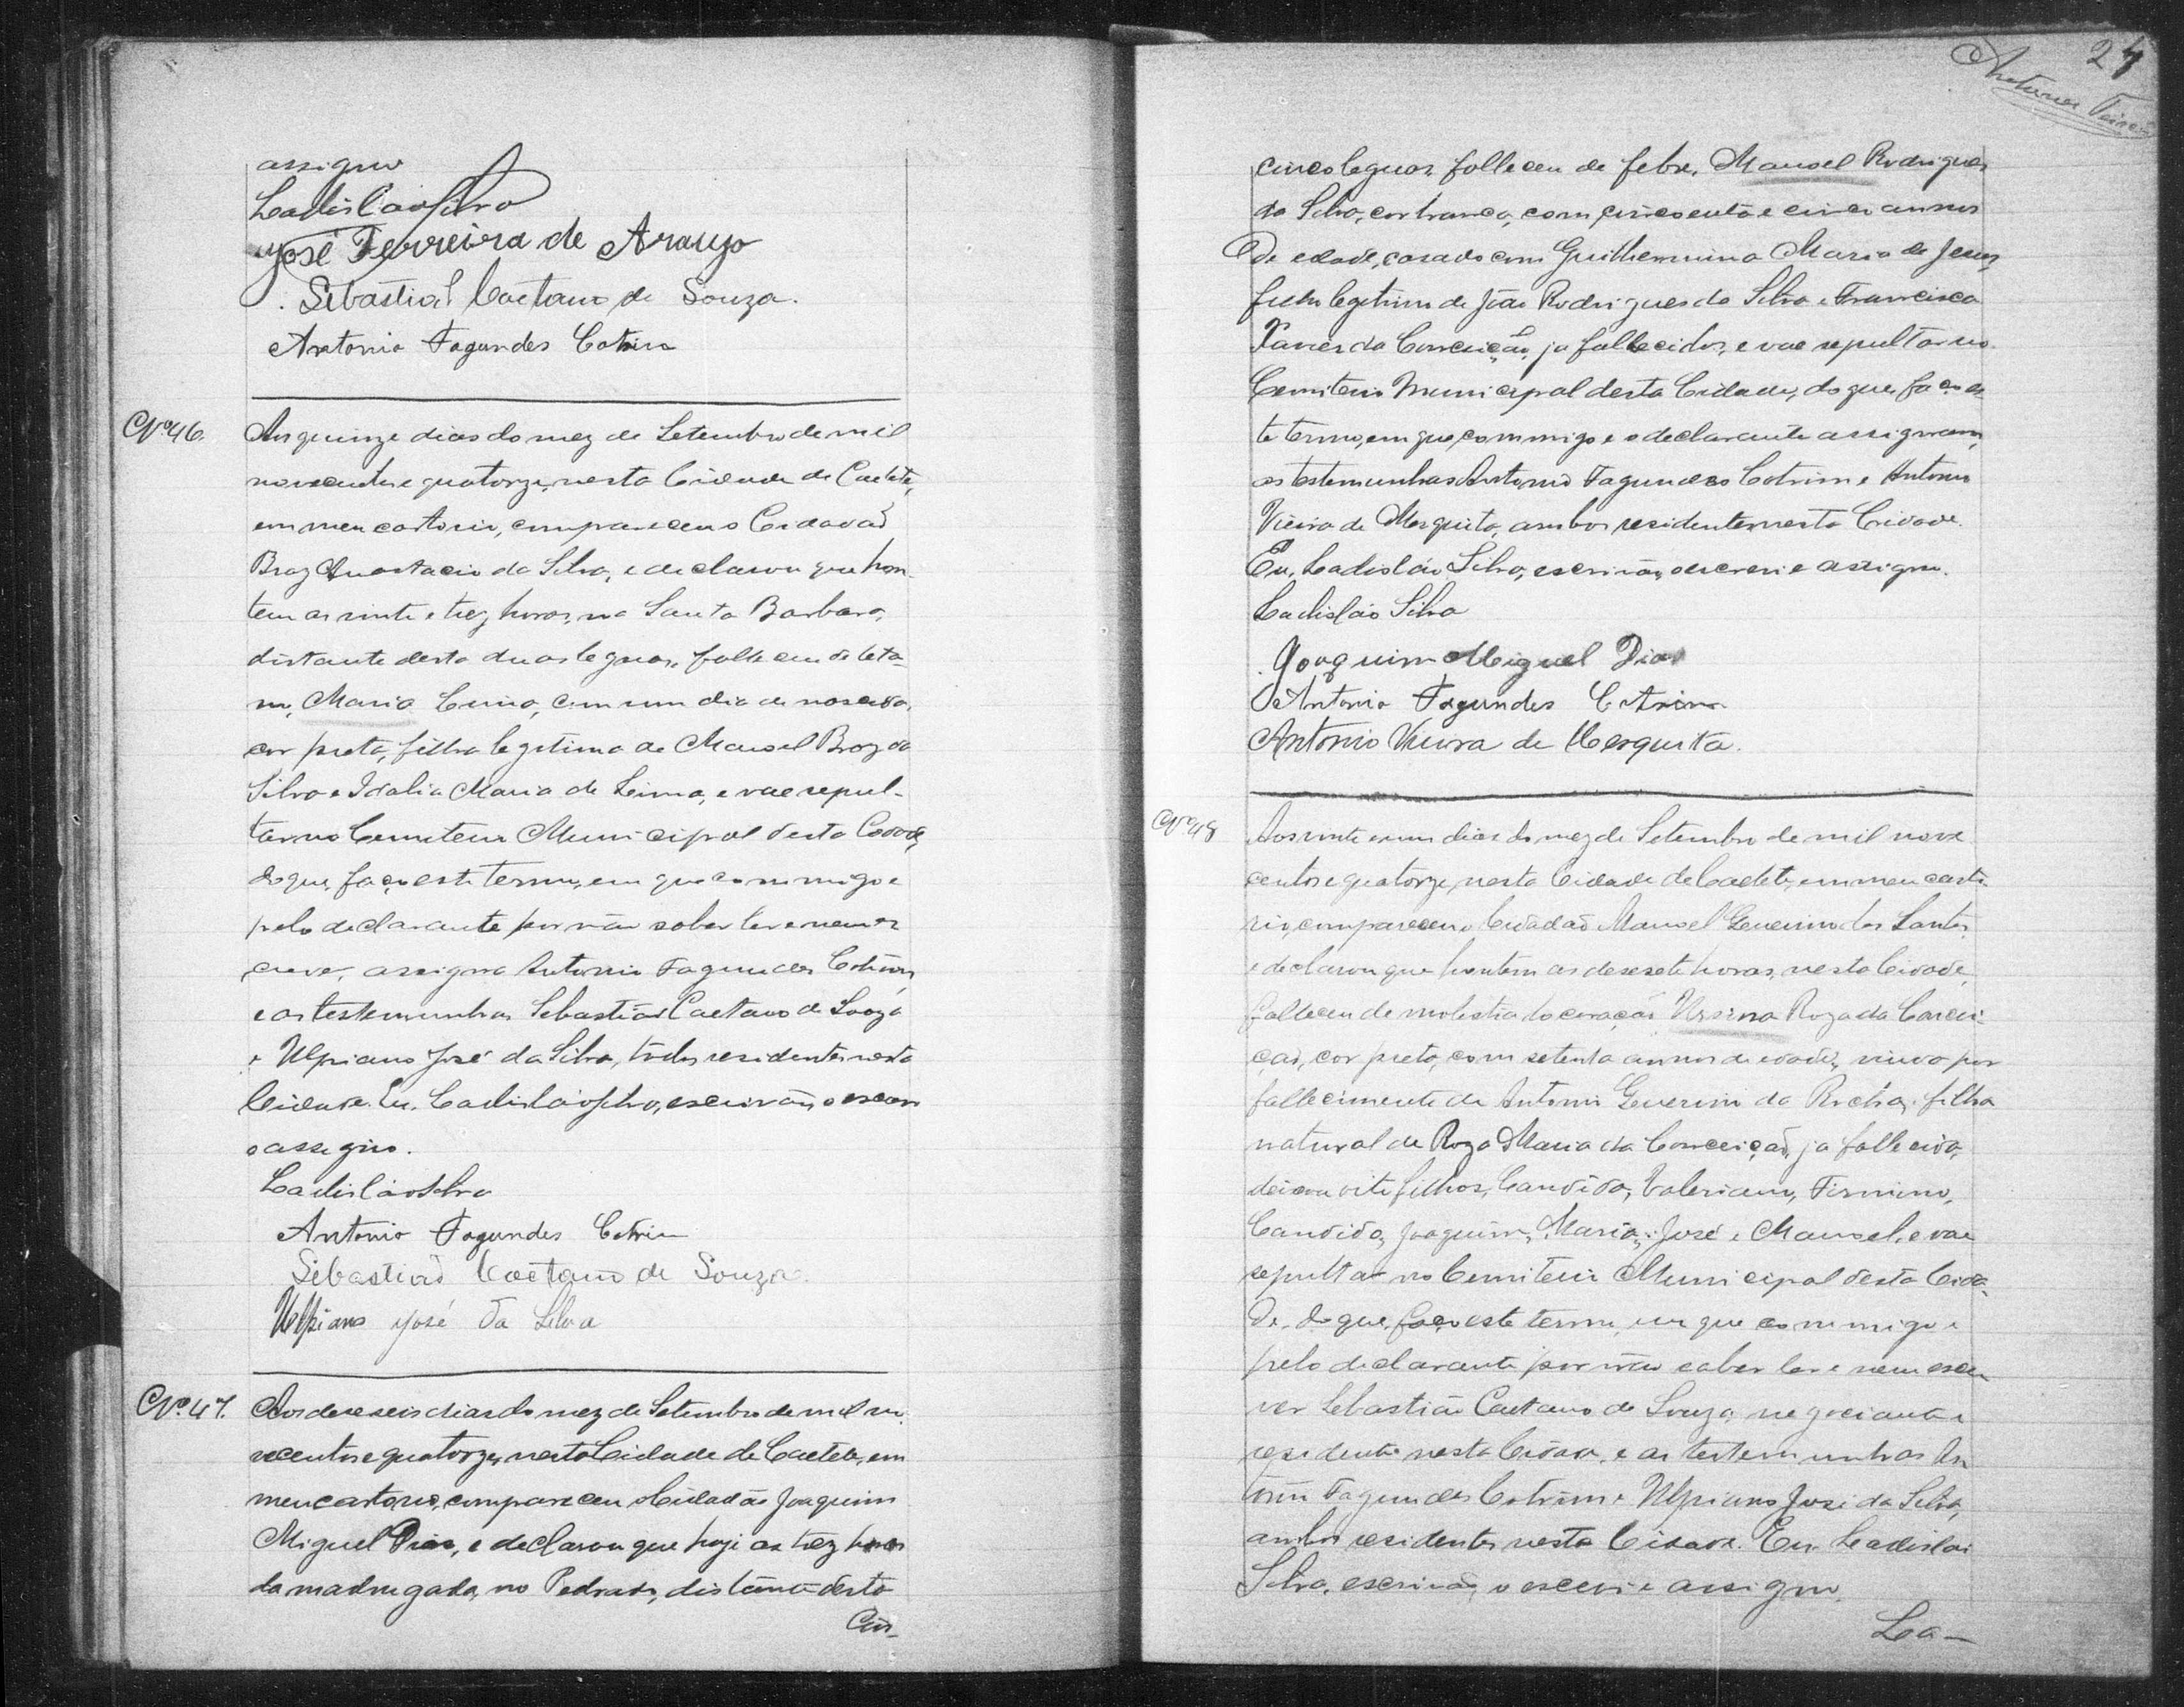 assigno
Ladisláo Silva
José Ferreira de Araujo
Sebastião Caetano de Souza.
Antonio Fagundes Cotrim
Nº 46.
Aos quinze dias do mez de Setembro de mil
novecentos e quatorze, nesta Cidade de Caeteté,
em meu cartorio, compareceu o Cidadão
Braz Anastacio da Silva, e declarou que hon-
tem as vinte e trez horas, na Santa Barbara,
distante desta duas leguas, falleceu de teta-
no, Maria, com um dia de nascida,
cor preta, filha legitima de Manoel Braz da
Silva e Idalia Maria de Lima, e vae sepul-
tar no Cemiterio Municipal desta Cidade,
do que, faço este termo, em que commigo e
pelo declarante por não saber ler e nem es
crever, assigna Antonio Fagundes Cotrim,
e as testemunhas Sebastião Caetano de Souza
e Ulpiano José da Silva, todos residentes nesta
Cidade. Eu, Ladisláo Silva, escrivão, o escrevi
e assigno.
Ladisláo Silva
Antonio Fagundes Cotrim
Sebastião Caetano de Souza.
Ulpiano José da Silva
Nº 47.
Aos deseseis dias do mez de Setembro de mil no-
vecentos e quatorze, nesta Cidade de Caeteté, em
meu cartorio, compareceu o Cidadão Joaquim
Miguel Dias, e declarou que hoje as trez horas
da madrugada, no Pedrado, distante desta
Cin-
24
Antunes Teixeira
cinco leguas, falleceu de febre, Manoel Rodrigues
da Silva, cor branca, com cincoenta e cinco annos
de edade, casado com Guilhermina Maria de Jesus,
filho legitimo de João Rodrigues da Silva e Francisca
Xavier da Conceição, ja fallecidos, e vae sepultar no
Cemiterio Municipal desta Cidade, do que, faço es
te termo, em que, commigo e o declarante assignam,
as testemunhas Antonio Fagundes Cotrim e Antonio
Vieira de Mesquita, ambos residentes nesta Cidade.
Eu, Ladisláo Silva, escrivão, o escrevi e assigno.
Ladisláo Silva
Joaquim Miguel Dias
Antonio Fagundes Cotrim
Antonio Vieira de Mesquita.
Nº 48
Aos vinte e um dias do mez de Setembro de mil nove
centos e quatorze, nesta Cidade de Caeteté, em meu carto-
rio, compareceu o Cidadão Manoel Severino dos Santos,
e declarou que hontem as desesete horas, nesta Cidade,
falleceu de molestia do coração Ursina Roza da Concei-
ção, cor preta, com setenta annos de edade, viuva por
fallecimento de Antonio Severino da Rocha, filha
natural de Roza Maria da Conceição, ja fallecida,
deixou oito filhos, Candida, Valeriano, Firmino,
Candido, Joaquim, Maria, José e Manoel, e vae
sepultar no Cemiterio Municipal desta Cida-
de, do que, faço este termo, em que commigo e
pelo declarante por não saber ler e nem escre
ver Sebastião Caetano de Souza, negociante e
residente nesta Cidade, e as testemunhas An
tonio Fagundes Cotrim e Ulpiano José da Silva,
ambos residentes nesta Cidade. Eu Ladisláo
Silva, escrivão, o escrevi e assigno.
La-